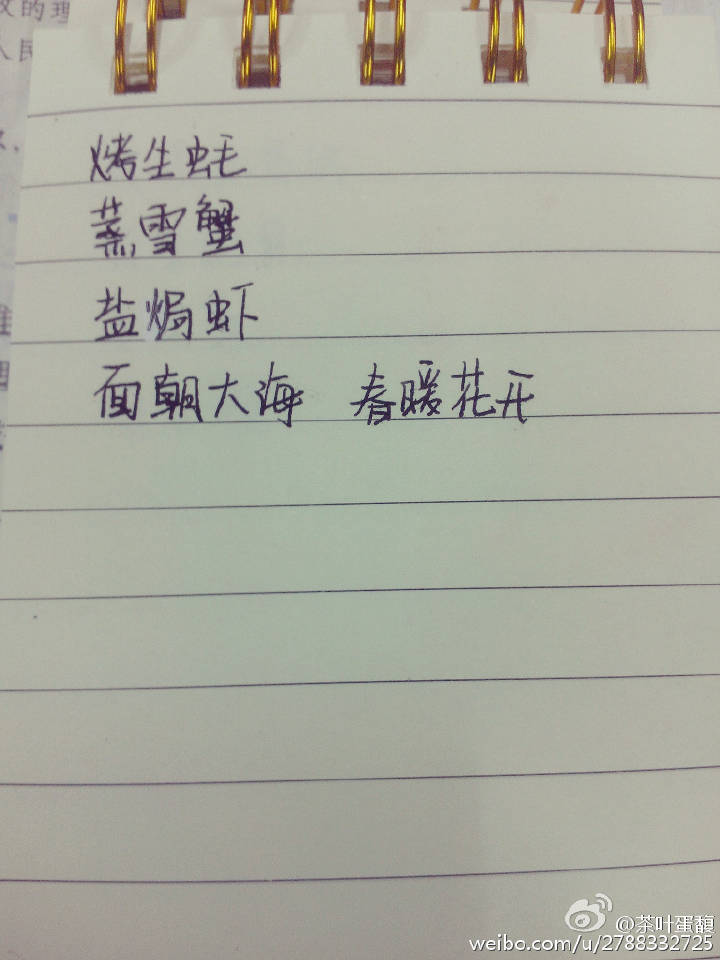 政的理
人民
烤生蚝
蒸雪蟹
盐焗虾
面朝大海 春暖花开
@茶叶蛋馥
weibo.com/u/2788332725